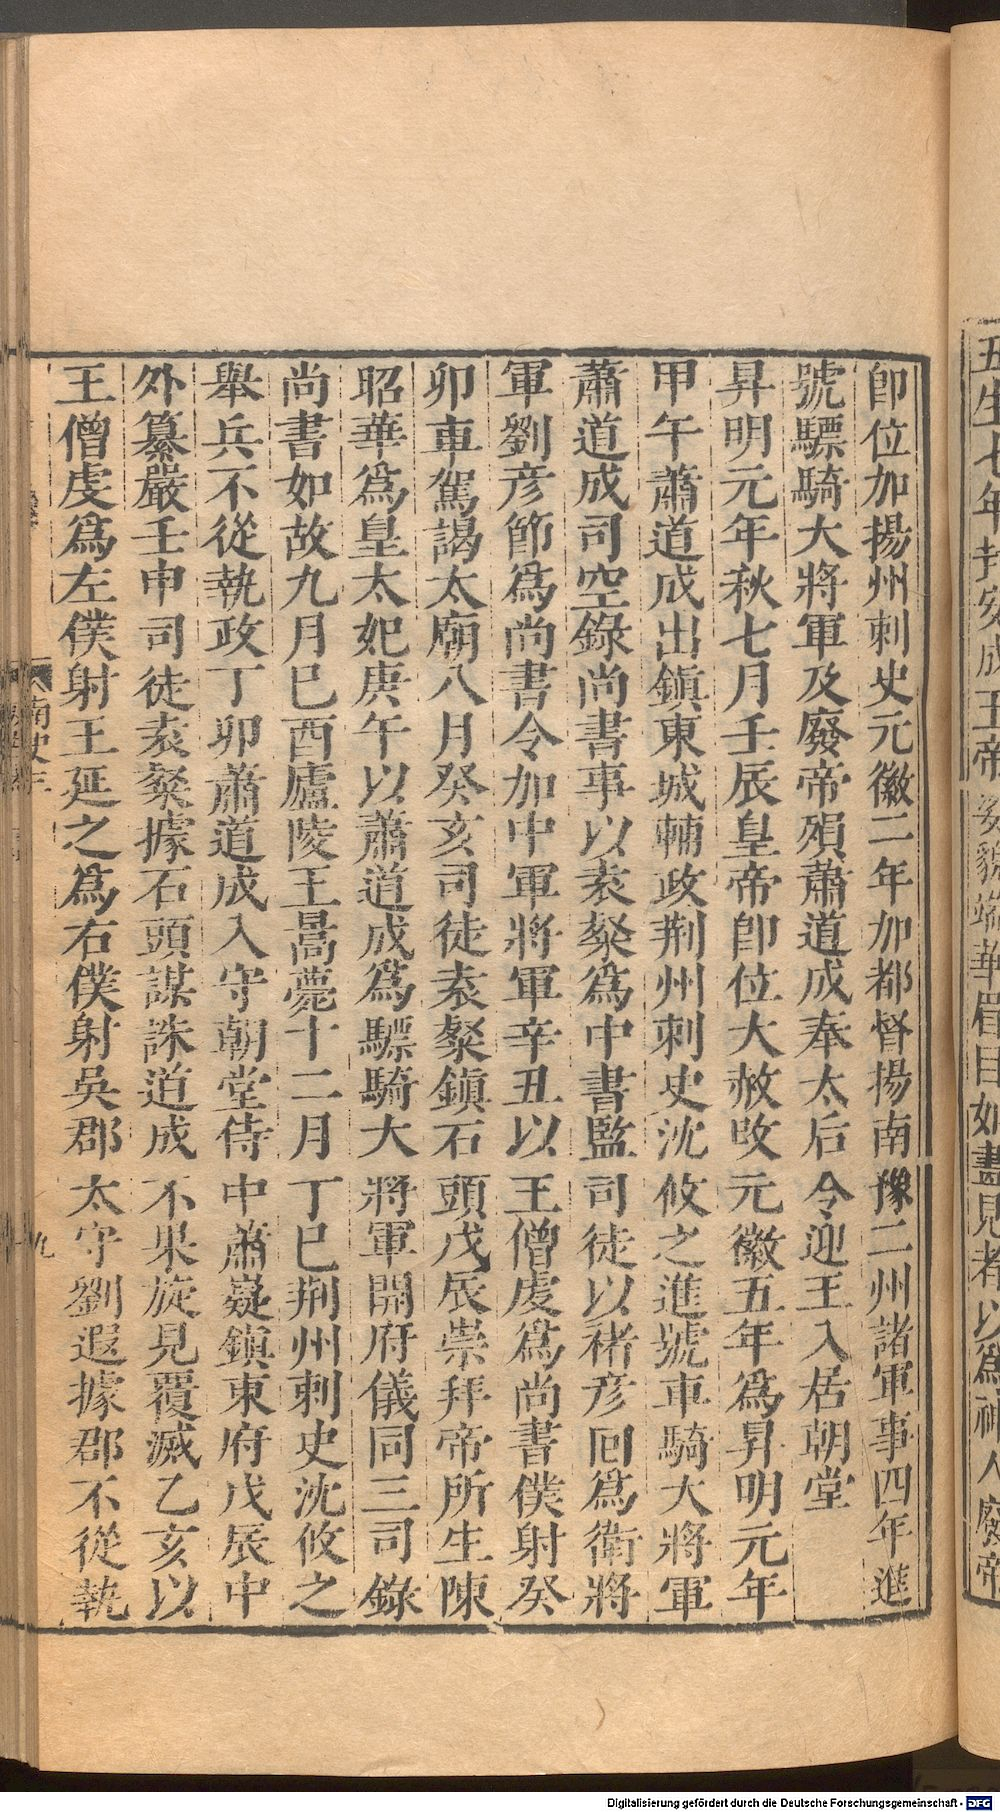 五生七年封安成王帝姿貌端華眉目如畫見者以爲神人廢帝
卽位加揚州刺史元徽二年加都督揚南豫二州諸軍事四年進
號驃騎大將軍及廢帝殞蕭道成奉太后令迎王入居朝堂
昇明元年秋七月壬辰皇帝卽位大赦改元徽五年爲昇明元年
甲午蕭道成出鎮東城輔政荆州刺史沈攸之進號車騎大將軍
蕭道成司空錄尚書事以袁粲爲中書監司徒以禇彦回爲衛將
軍劉彦節爲尚書令加中軍將軍辛丑以王僧虔爲尚書僕射癸
卯車駕謁太廟八月癸亥司徒袁粲鎮石頭戊辰崇拜帝所生陳
昭華爲皇太妃庚午以蕭道成爲驃騎大將軍開府儀同三司錄
尚書如故九月巳酉廬陵王暠薨十二月丁巳荆州刺史沈攸之
舉兵不從執政丁卯蕭道成入守朝堂侍中蕭嶷鎮東府戊辰中
外纂嚴壬申司徒袁粲據石頭謀誅道成不果旋見覆滅乙亥以
王僧虔爲左僕射王延之爲右僕射吳郡太守劉遐據郡不從執
南史三
九
Digitalisierung gefördert durch die Deutsche Forschungsgemeinschaft - DFG